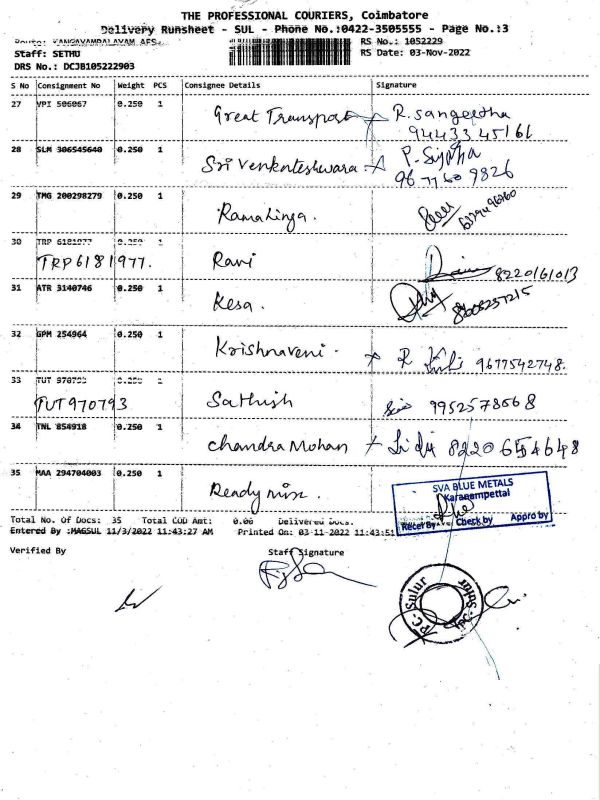 THE PROFESSIONAL COURIERS, Coimbatore
Delivery Runsheet - SUL - Phone No.:0422-3505555 - Page No.:3
RS No.: 1052229
Staff: SETHU RS Date: 03-Nov-2022
DRS No.: DCJB105222903
S No Consignment No Weight PCS Consignee Details Signature
27 VPI 506067 0.250 1 Great Transport R. sangeetha
94433 45161
28 SLM 306545640 0.250 1 Sri Venkateshwara P.
967760 9826
29 TMG 200298279 0.250 1 Ramalinga.
30 TRP 6181977 0.250 1 Ravi
TRP6181977. 8220161013
31 ATR 3140746 0.250 1 Kesa.
32 GPM 254964 0.250 1 Krishnaveni. R 9677542748.
33 TUT 970793 0.250 1 Sathish
TUT970793 9952578668
34 TNL 854918 0.250 1 Chandra Mohan 8220654648
35 MAA 294704003 0.250 1 Ready mix.
SVA BLUE METALS
Karanampettai
Recei By Check by Appro by
Total No. Of Docs: 35 Total COD Amt: 0.00 Delivered Docs.
Entered By :MAGSUL 11/3/2022 11:43:27 AM Printed On: 03-11-2022 11:43:51
Verified By Staff Signature
P.C- Sulur